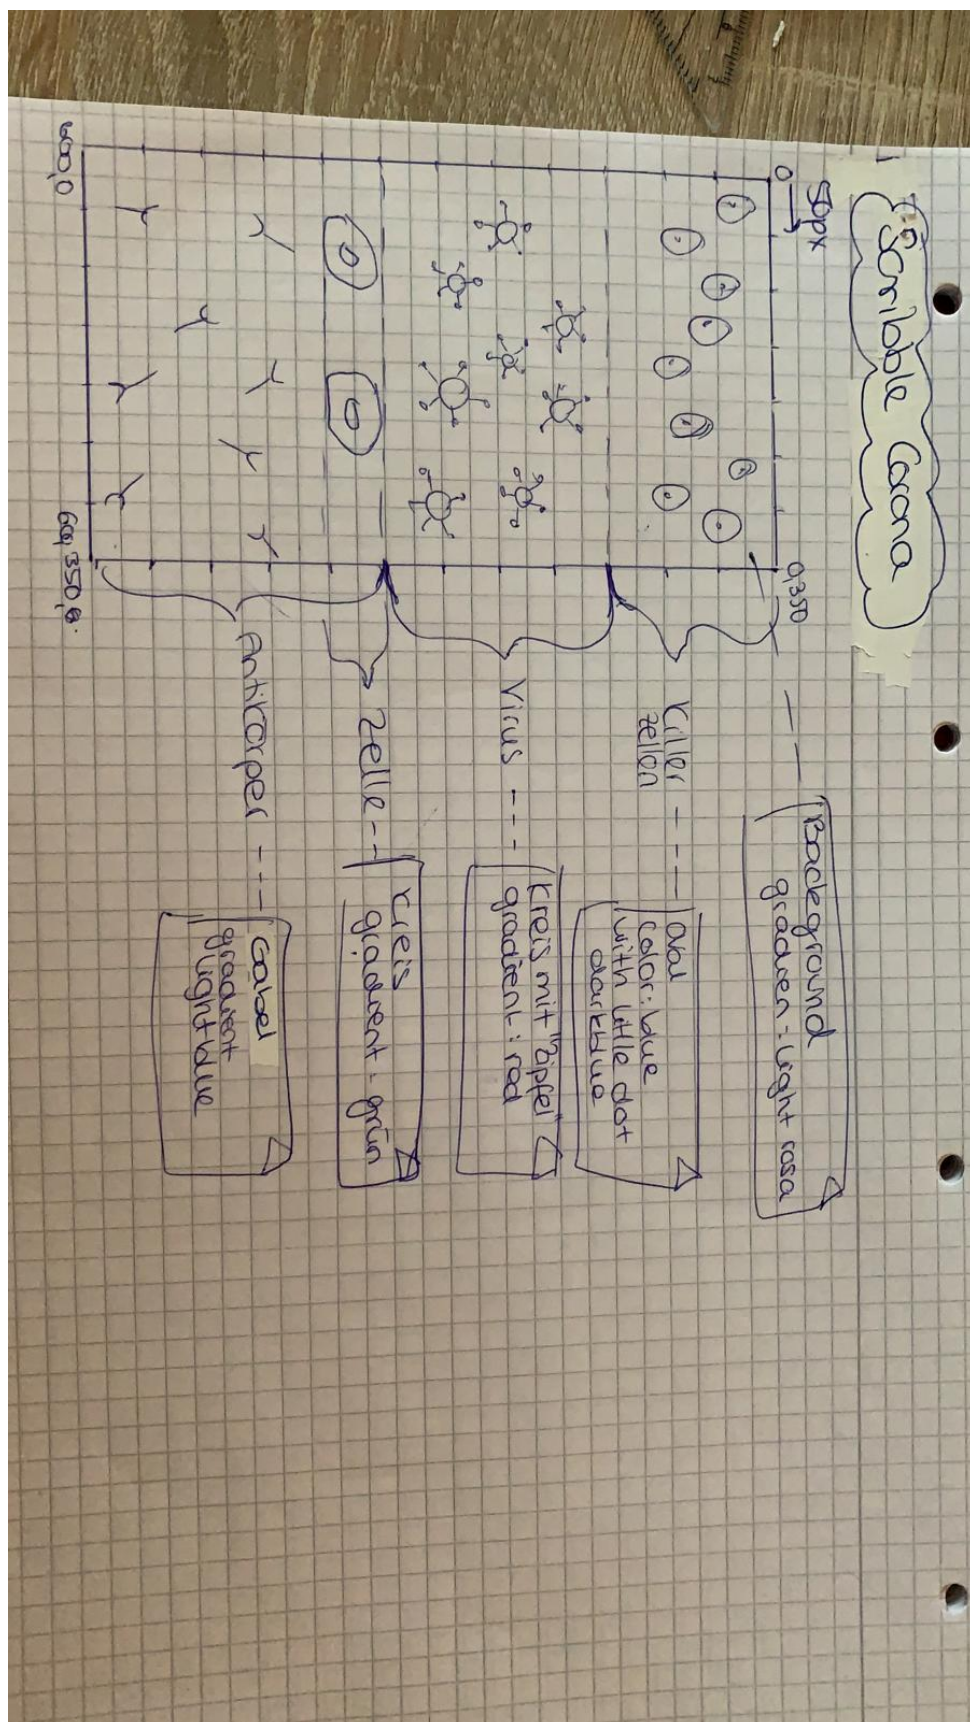 Scribble Corona
50px
0
0,350
Background
gradien : light rosa
Killer
zellen
oval
color: blue
with little dot
darkblue
Virus
Kreis mit "Zipfel"
gradient : red
Zelle
Kreis
gradient : grün
Antikörper
Gabel
gradient
lightblue
600,0